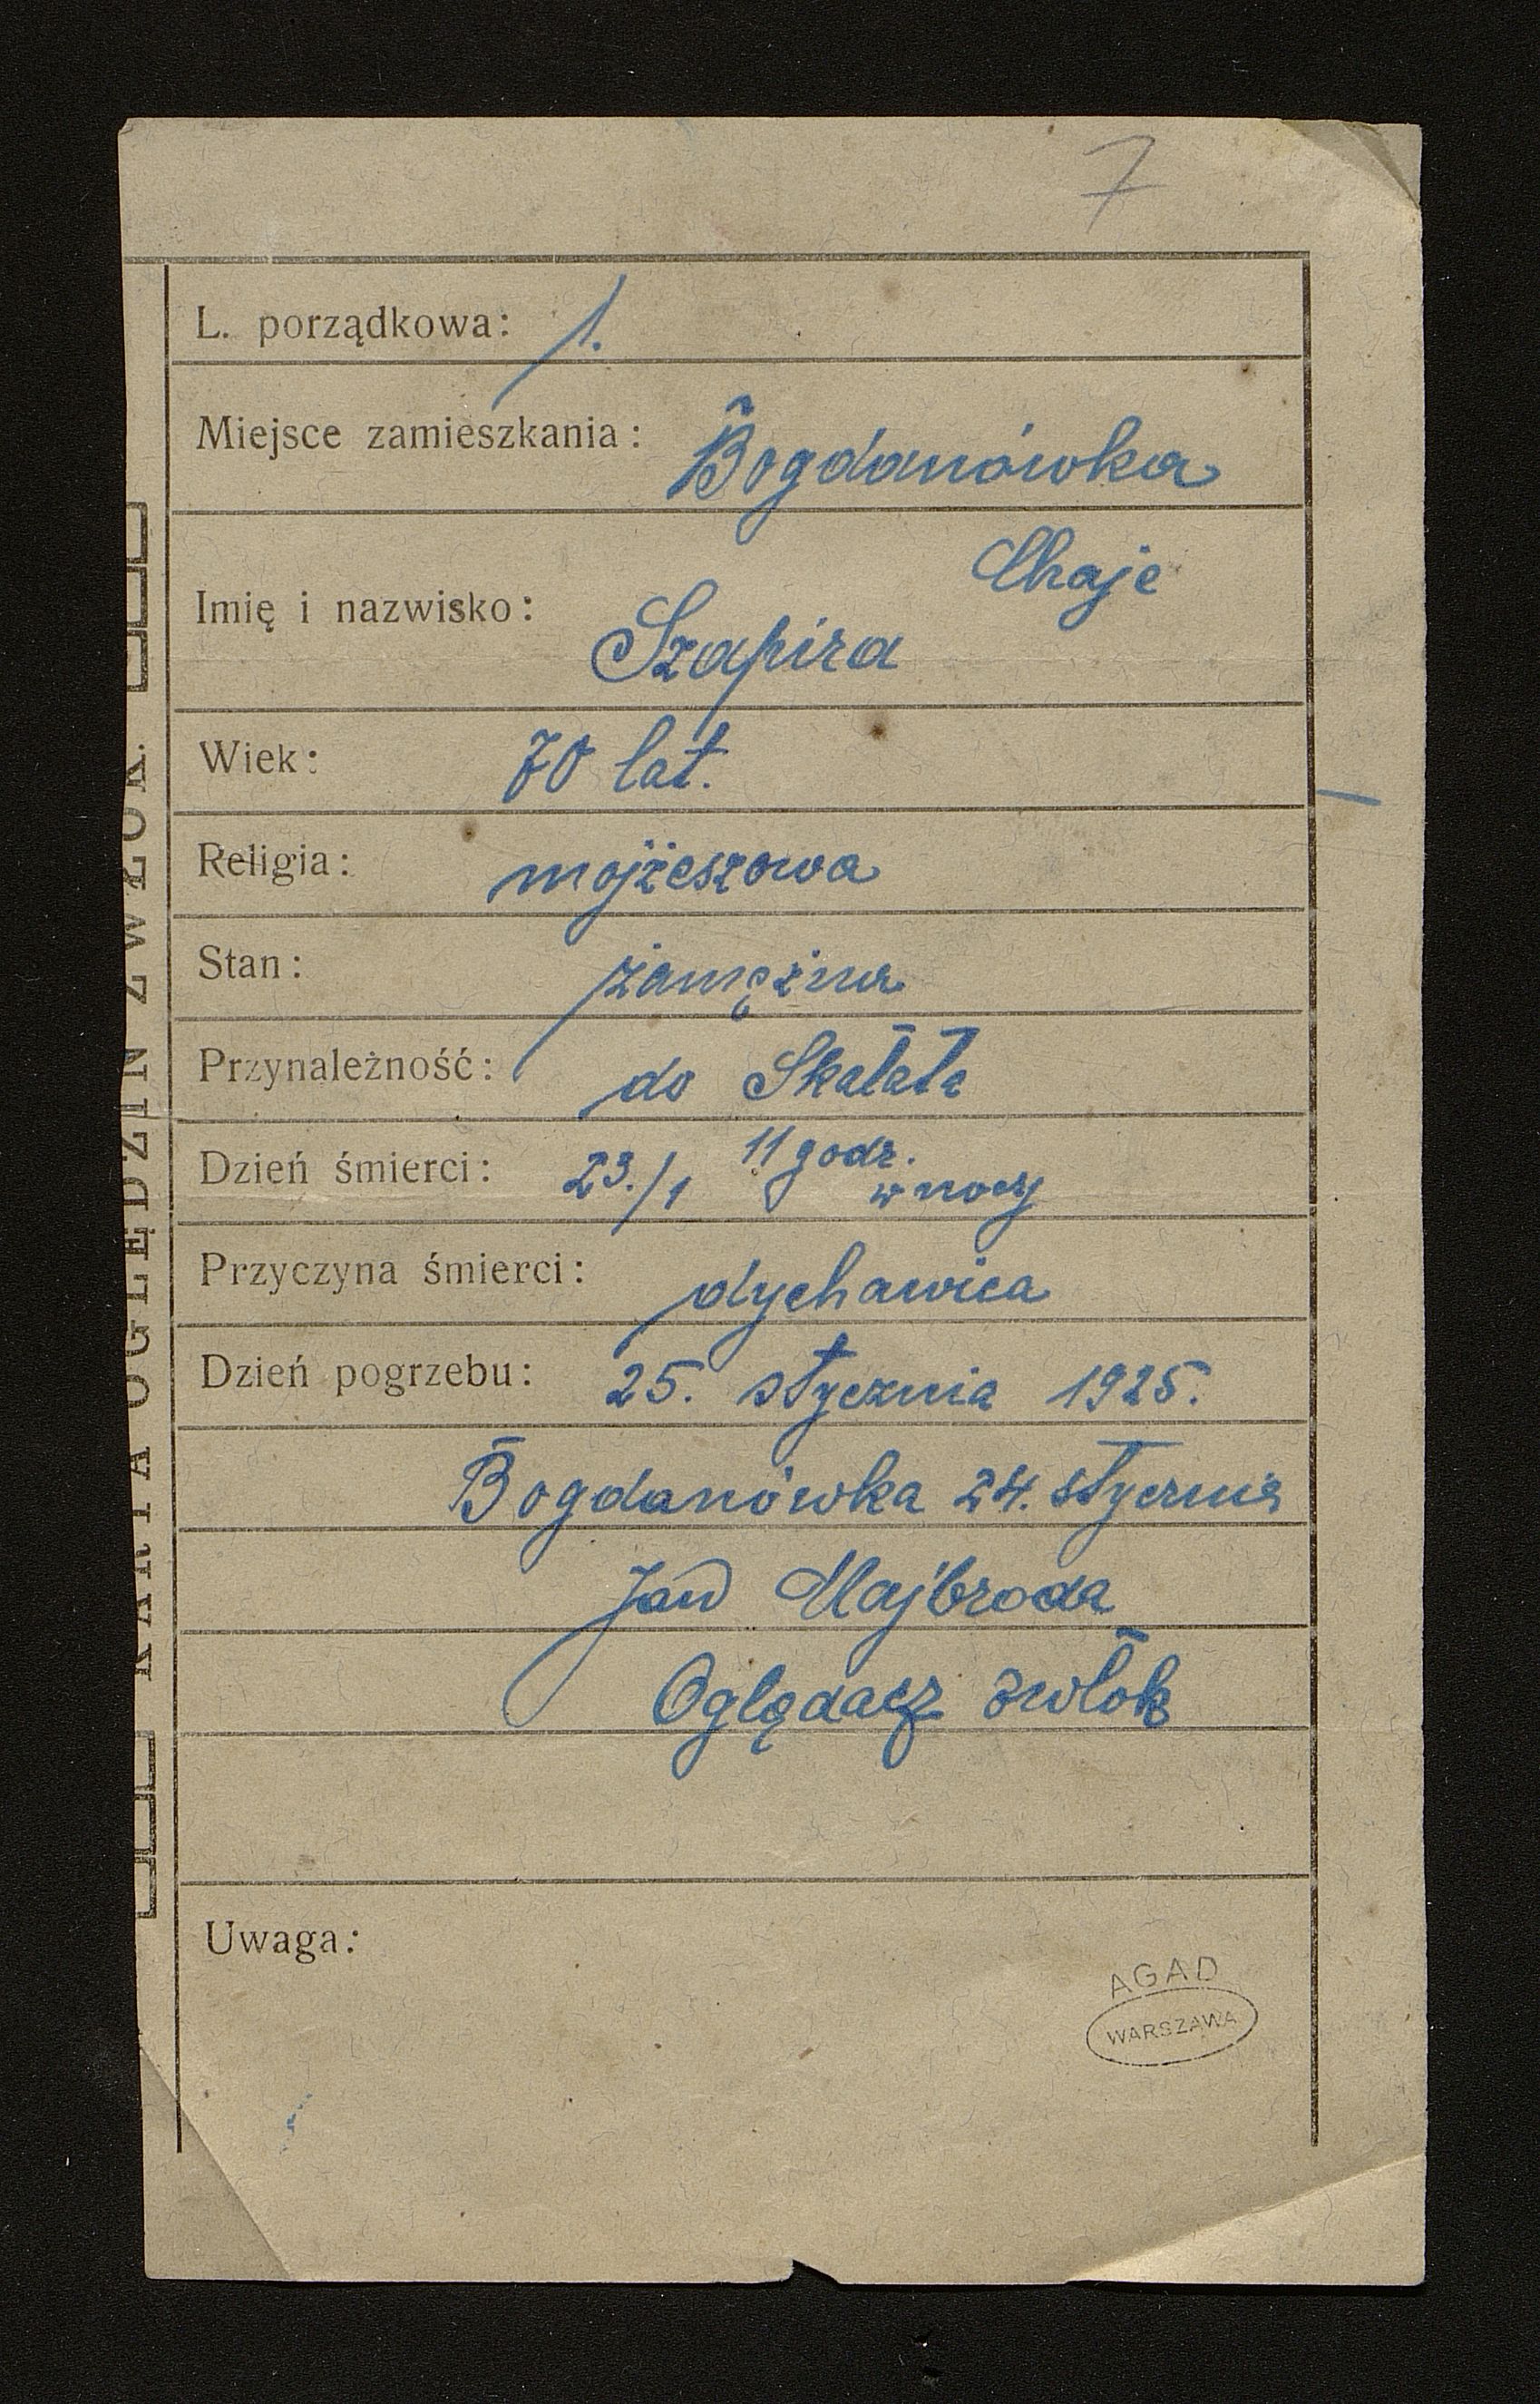 7
L. porządkowa: 1.
Miejsce zamieszkania: Bogdanówka
Chaje
Imię i nazwisko: Szapira
Wiek: 70 lat.
Religia: mojżeszowa
Stan: zamężna
Przynależność: do Skałata
Dzień śmierci: 23./1 11 godz.
w nocy
Przyczyna śmierci: dychawica
Dzień pogrzebu: 25. stycznia 1925.
Bogdanówka 24. stycznia
Jan Majbroda
Oglądacz zwłok
Uwaga:
AGAD
WARSZAWA
KARTA OGLĘDZIN ZWŁOK.